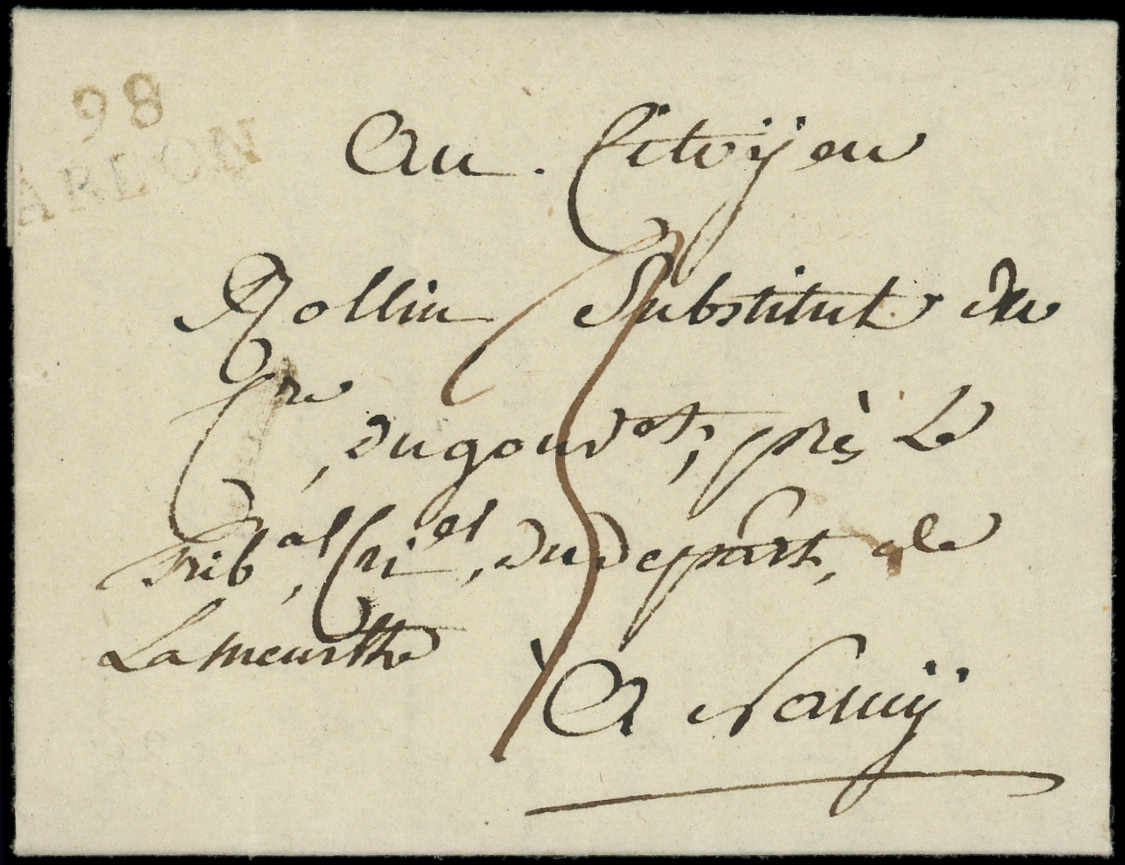 98
ARLON
Au Citoÿen
Rollin Substitut du
Cre du gouvet, près Le
Tribal, Criel, du Depart, de
Lameurthe
À Nancÿ
5